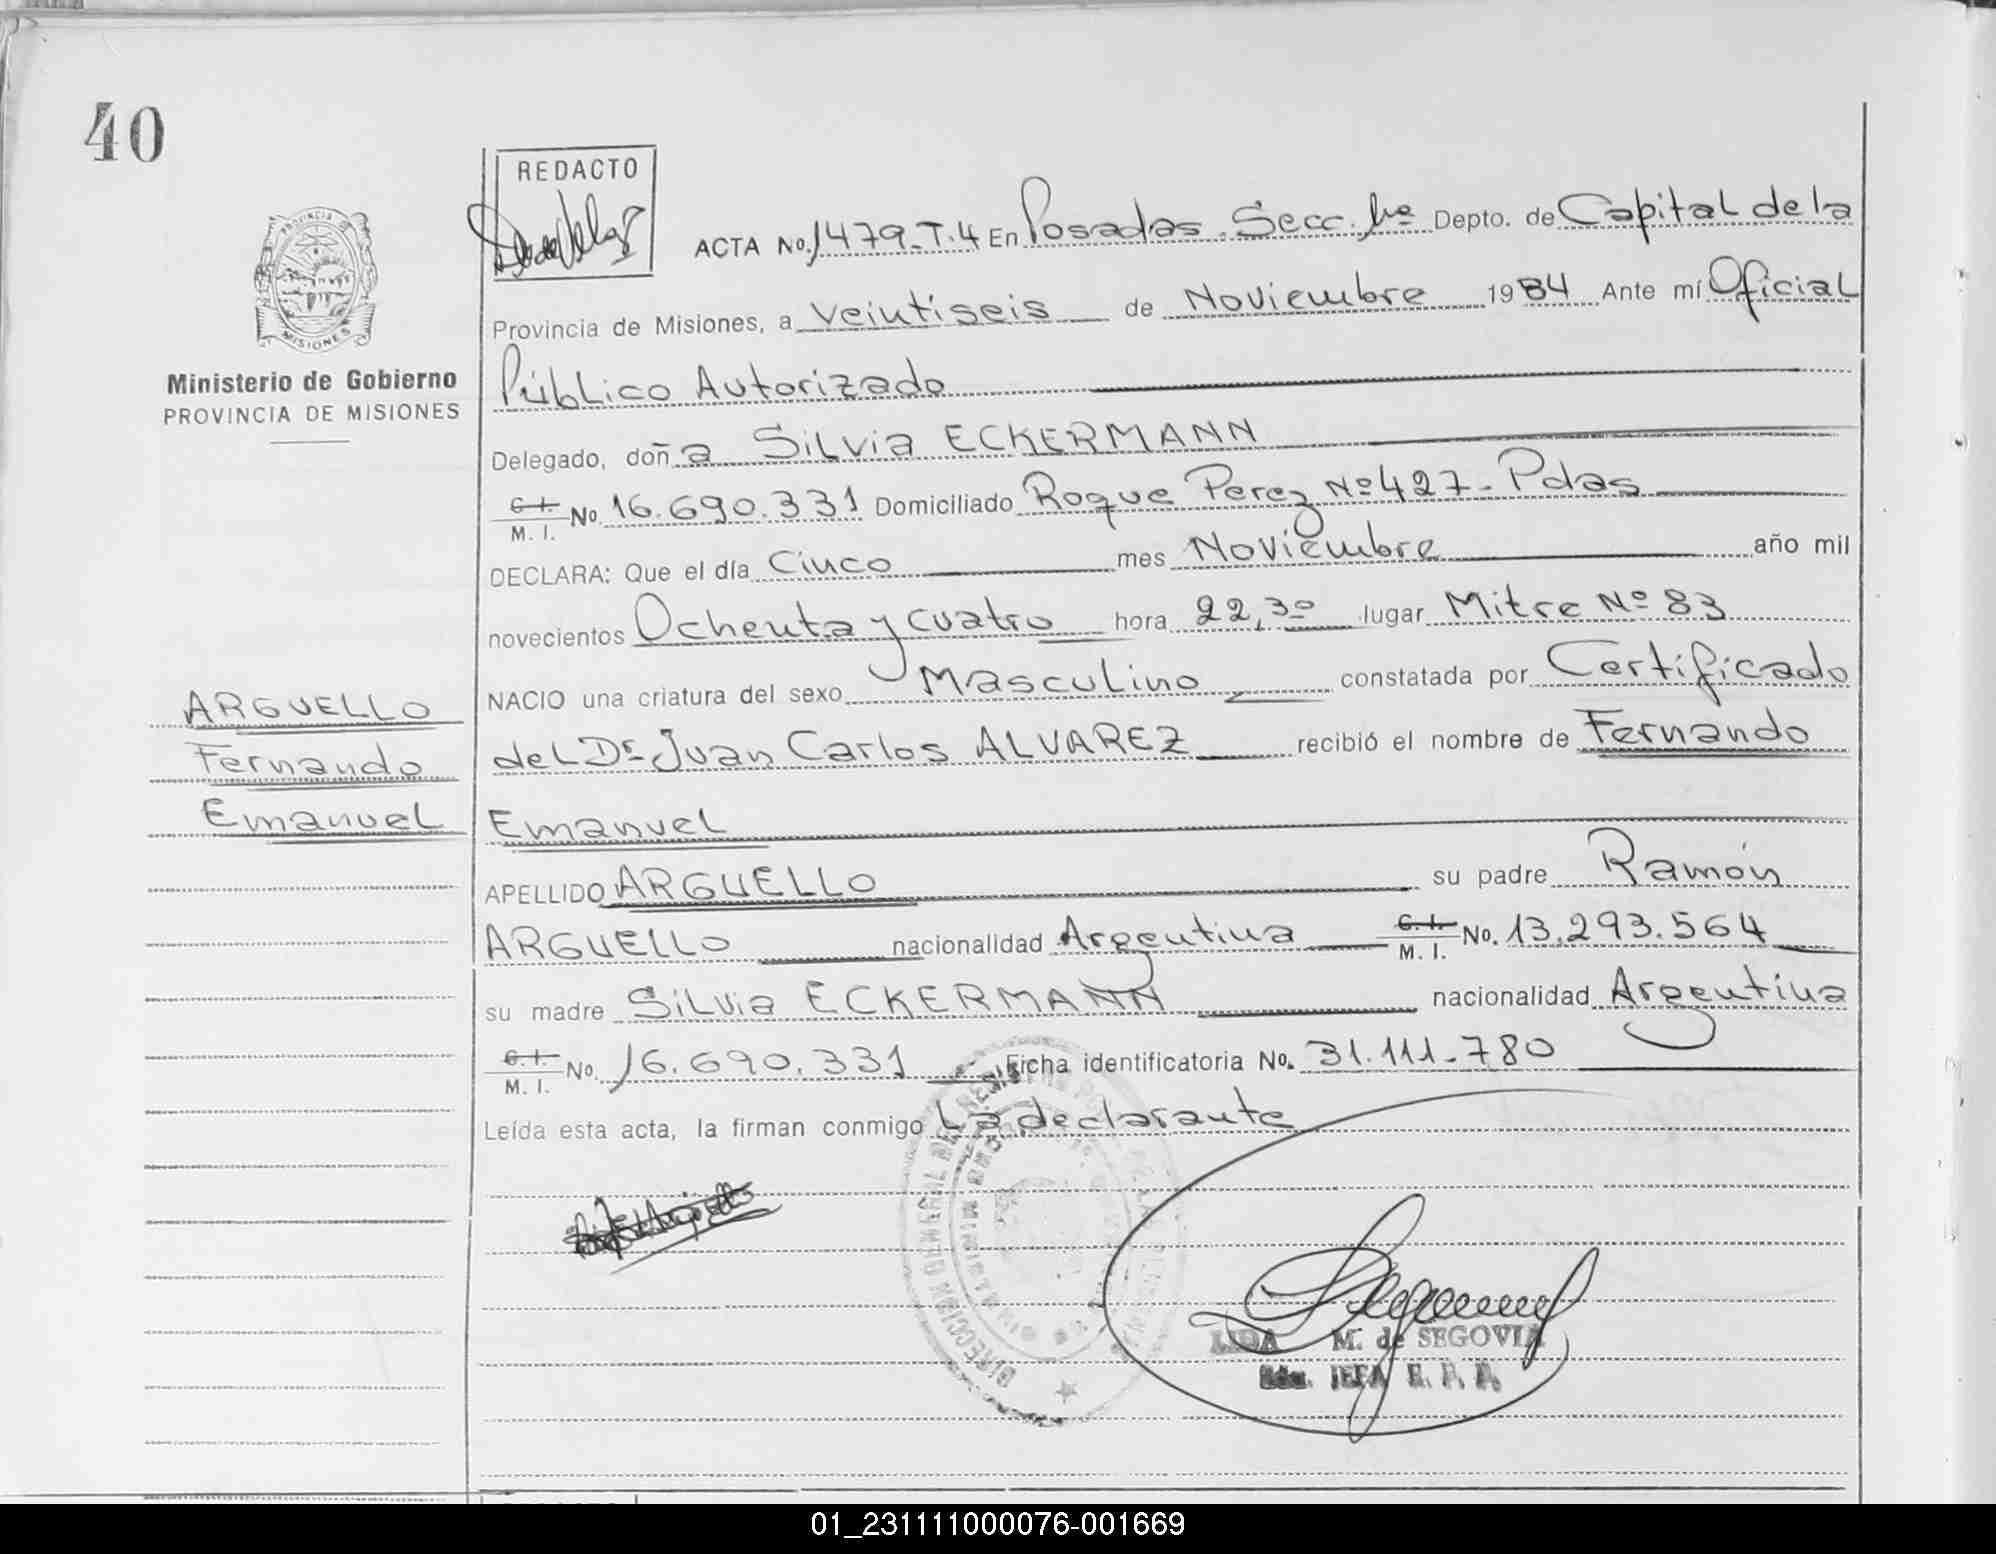 40
REDACTO
ACTA No. 1479-T.4 En Posadas Secc. 1ra Depto. de Capital de la
Provincia de Misiones, a Veintiseis de Noviembre 1984 Ante mí Oficial
Ministerio de Gobierno
PROVINCIA DE MISIONES
Público Autorizado
Delegado, doña Silvia ECKERMANN
C. I. M. I. No. 16.690.331 Domiciliado Roque Perez Nº 427- Pdas
DECLARA: Que el día Cinco mes Noviembre año mil
novecientos Ochenta y cuatro hora 22,30 lugar Mitre Nº 83
NACIO una criatura del sexo Masculino constatada por Certificado
ARGUELLO
Fernando
Emanuel
del Dr Juan Carlos ALVAREZ recibió el nombre de Fernando
Emanuel
APELLIDO ARGUELLO su padre Ramón
ARGUELLO nacionalidad Argentina C. I. M. I. No. 13.293.564
su madre Silvia ECKERMANN nacionalidad Argentina
C. I. M. I. No. 16.690.331 Ficha identificatoria No. 31.111-780
Leída esta acta, la firman conmigo La declarante
LIDA M. de SEGOVIA
JEFA
01_231111000076-001669